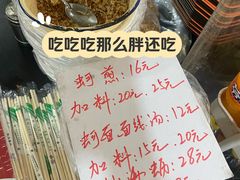 吃吃吃那么胖还吃
蚵煎:16元
加料:20元.25元
蚵面面线汤:12元
加料:15元.20元
28元